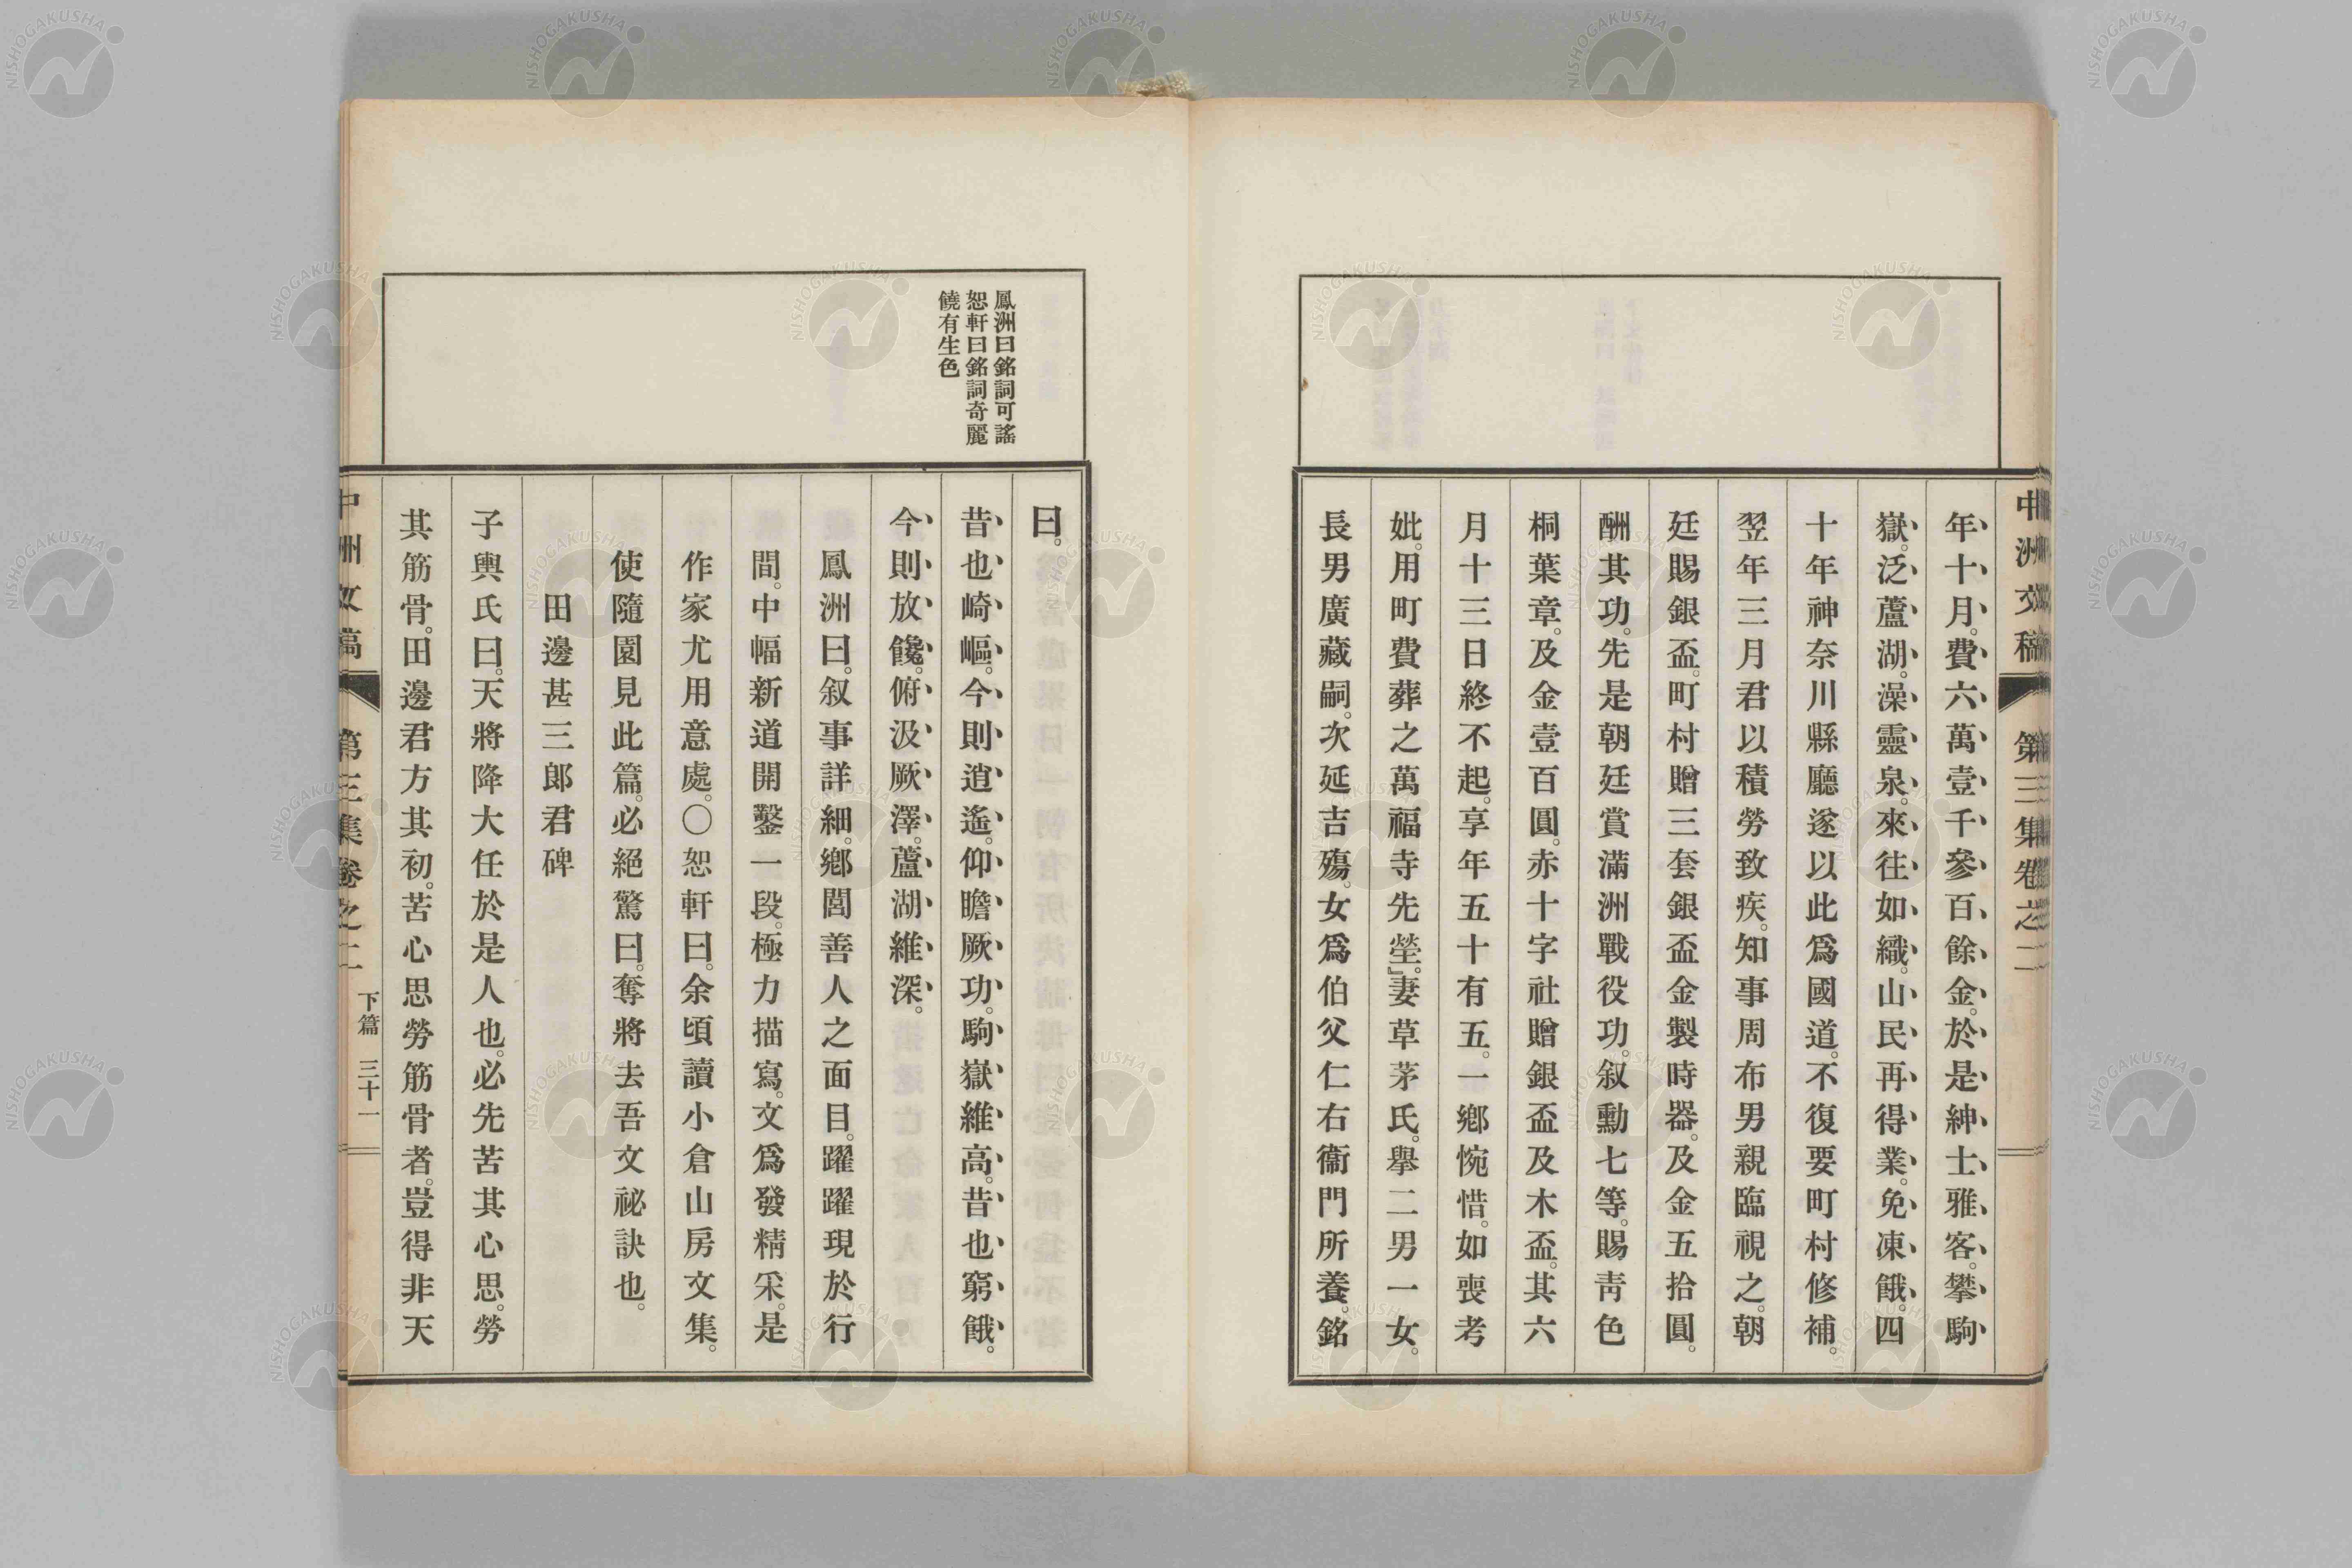 中洲文稿 第三集卷之二
年十月。費六萬壹千參百餘金。於是紳士雅客。攀駒
嶽。泛蘆湖。澡靈泉。來往如織。山民再得業。免凍餓。四
十年神奈川縣廳遂以此爲國道。不復要町村修補。
翌年三月君以積勞致疾。知事周布男親臨視之。朝
廷賜銀盃。町村贈三套銀盃金製時器。及金五拾圓。
酬其功。先是朝廷賞滿洲戰役功。叙勳七等。賜靑色
桐葉章。及金壹百圓。赤十字社贈銀盃及木盃。其六
月十三日終不起。享年五十有五。一鄕惋惜。如喪考
妣。用町費葬之萬福寺先塋。』妻草茅氏。擧二男一女。
長男廣藏嗣。次延吉殤。女爲伯父仁右衞門所養。銘
鳳洲曰銘詞可謠
恕軒曰銘詞奇麗
饒有生色
曰。
昔也崎嶇。今則逍遙。仰瞻厥功。駒嶽維高。昔也窮餓。
今則放饞。俯汲厥澤。蘆湖維深。
鳳洲曰。叙事詳細。鄕閭善人之面目。躍躍現於行
間。中幅新道開鑿一段。極力描寫。文爲發精采。是
作家尤用意處。〇恕軒曰。余頃讀小倉山房文集。
使隨園見此篇。必絕驚曰。奪將去吾文祕訣也。
田邊甚三郎君碑
子輿氏曰。天將降大任於是人也。必先苦其心思。勞
其筋骨。田邊君方其初。苦心思勞筋骨者。豈得非天
中洲文稿 第三集卷之二 下篇 三十一